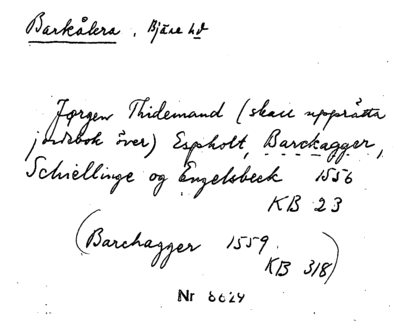 Barkåkra, Bjäre hd
Jørgen Thidemand (skall upprätta
jordebok över) Espholt, Barckagger,
Schiellinge og Engelsbeck 1556
KB 23
(Barchagger 1559
KB 318)
Nr 6624